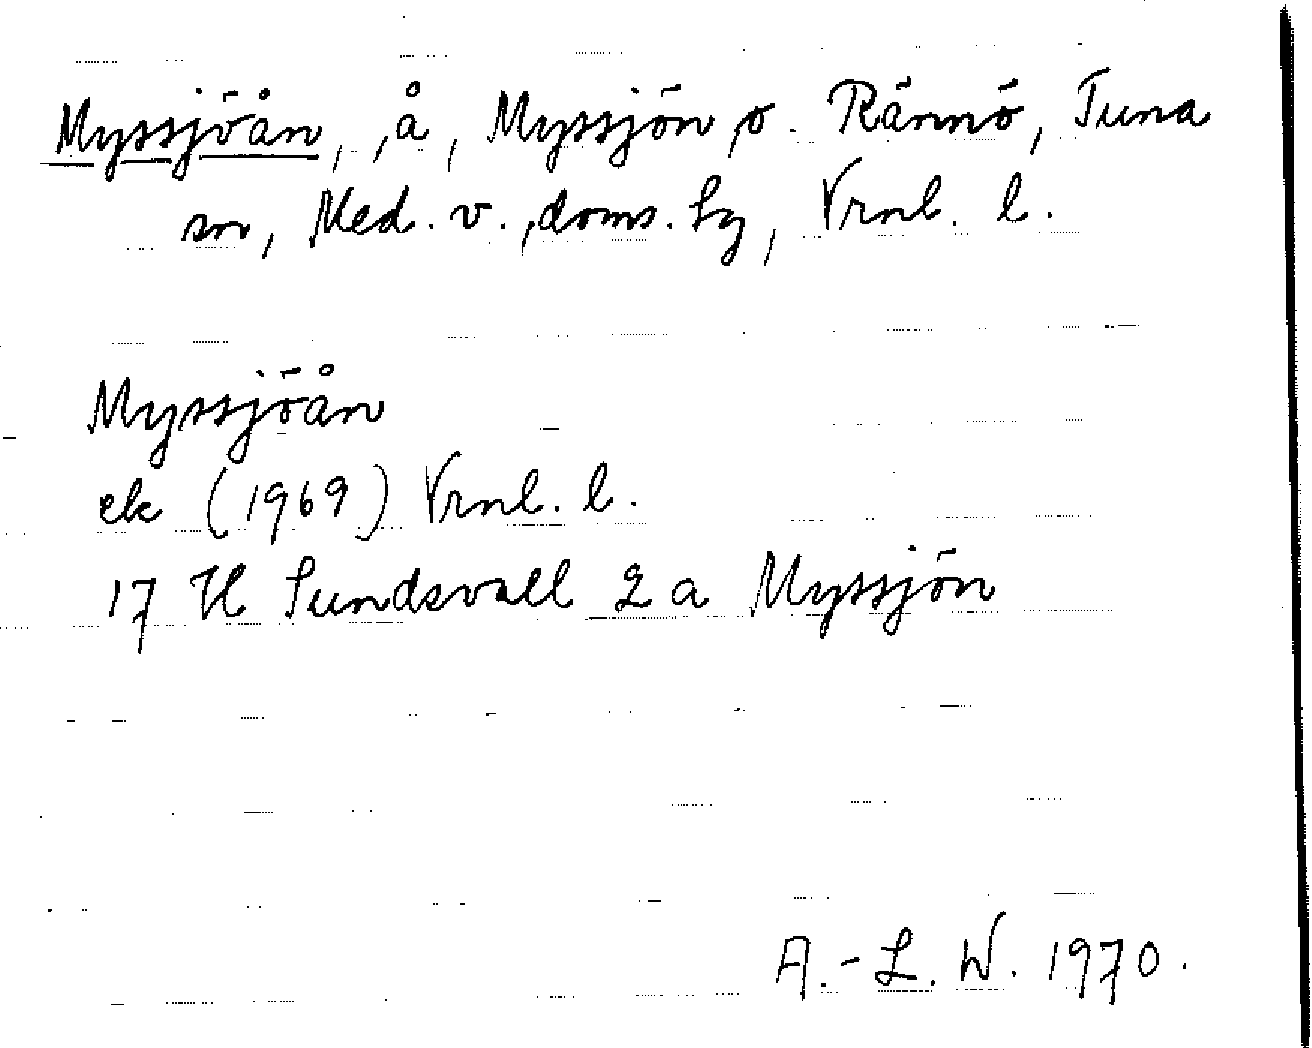 Myssjöån, å, Myssjön o. Rännö, Tuna
sn, Med. v. doms. sg, Vrnl. l.
Myssjöån
ek (1969) Vrnl. l.
17 H Sundsvall 2 a Myssjön
A.-L. W. 1970.